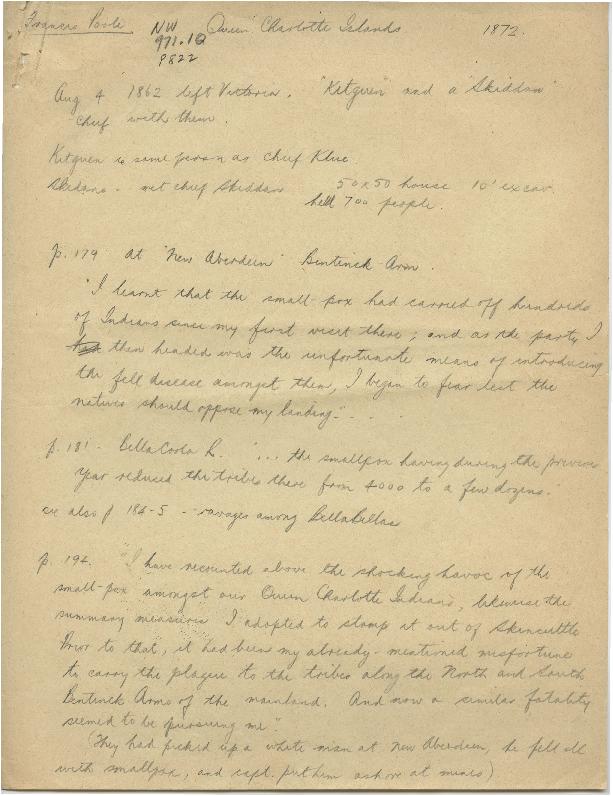 Francis Poole NW Queen Charlotte Islands 1872.
971.12
P822
Aug 4 1862 left Victoria. "Kitguen" and a "Skiddan"
chief with them.
Kitguen is same person as Chief Klue
Skedans - met chief Skiddan 50x50 house 10' excav.
held 700 people.
p. 179 At "New Aberdeen" Bentinck Arm.
"I learnt that the small-pox had carried off hundreds
of Indians since my first visit there; and as the party I
then headed was the unfortunate means of introducing
the fell disease amongst them, I began to fear lest the
natives should oppose my landing." - . .
p. 181. Bella Coola R. "... the smallpox having during the previous
year reduced the tribes there from 4000 to a few dozens."
see also p 184-5 - ravages among BellaBellas
p. 194. "I have recounted above the shocking havoc of the
small-pox amongst our Queen Charlotte Indians, likewise the
summary measures I adopted to stamp it out of Skincuttle
Prior to that, it had been my already-mentioned misfortune
to carry the plague to the tribes along the North and South
Bentinck Arms of the mainland. And now a similar fatality
seemed to be pursuing me".
(They had picked up a white man at New Aberdeen, he fell ill
with smallpox, and capt. put him ashore at)